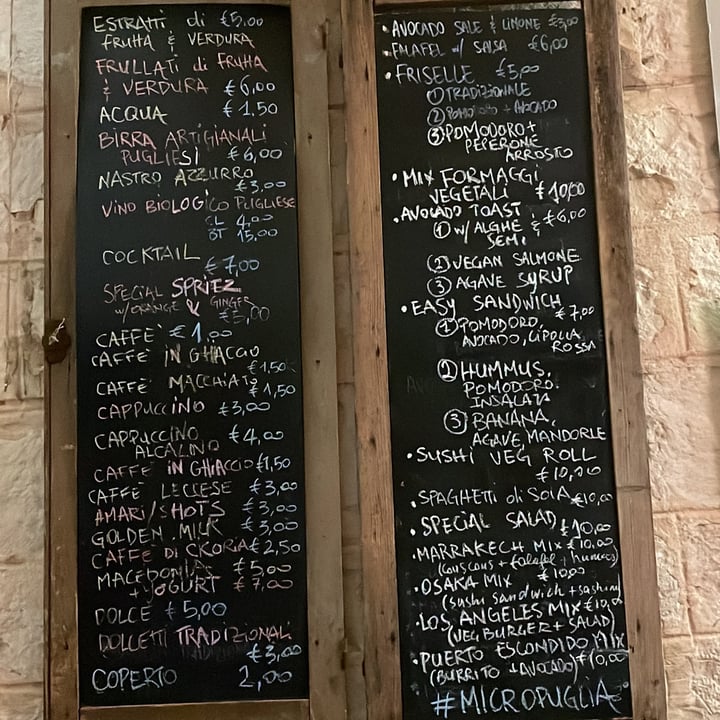 ESTRATTI di €5,00
FRUTTA & VERDURA
FRULLATI di FRUTTA
& VERDURA €6,00
ACQUA €1,50
BIRRA ARTIGIANALI
PUGLIESI €6,00
NASTRO AZZURRO
€3,00
VINO BIOLOGICO PUGLIESE
CL 4,00
BT 15,00
COCKTAIL
€7,00
SPECIAL SPRITZ
W/ORANGE & GINGER
€5,00
CAFFÈ €1,00
CAFFÈ IN GHIACCIO
€1,50
CAFFÈ MACCHIATO
€1,50
CAPPUCCINO €3,00
CAPPUCCINO €4,00
ALCALINO
CAFFÈ IN GHIACCIO €1,50
CAFFÈ LECCESE €3,00
AMARI/SHOTS €3,00
GOLDEN MILK €3,00
CAFFÈ DI CICORIA €2,50
MACEDONIA €5,00
+ YOGURT €7,00
DOLCE €5,00
DOLCETTI TRADIZIONALI
€3,00
COPERTO 2,00
• AVOCADO SALE & LIMONE €3,00
• FALAFEL W/ SALSA €6,00
• FRISELLE €5,00
① TRADIZIONALE
② POMODORO + AVOCADO
③ POMODORO +
PEPERONE
ARROSTO
• MIX FORMAGGI
VEGETALI €10,00
• AVOCADO TOAST
① W/ ALGHE & €6,00
SEMI
② VEGAN SALMONE
③ AGAVE SYRUP
• EASY SANDWICH
€7,00
① POMODORO,
AVOCADO, CIPOLLA
ROSSA
② HUMMUS,
POMODORO,
INSALATA
③ BANANA,
AGAVE, MANDORLE
• SUSHI VEG ROLL
€10,00
• SPAGHETTI di SOIA €10,00
• SPECIAL SALAD €10,00
• MARRAKECH MIX €10,00
(couscous + falafel + hummus)
• OSAKA MIX €10,00
(sushi sandwich + sashimi)
• LOS ANGELES MIX €10,00
(VEG BURGER + SALAD)
• PUERTO ESCONDIDO MIX
(BURRITO + AVOCADO) €10,00
#MICROPUGLIA